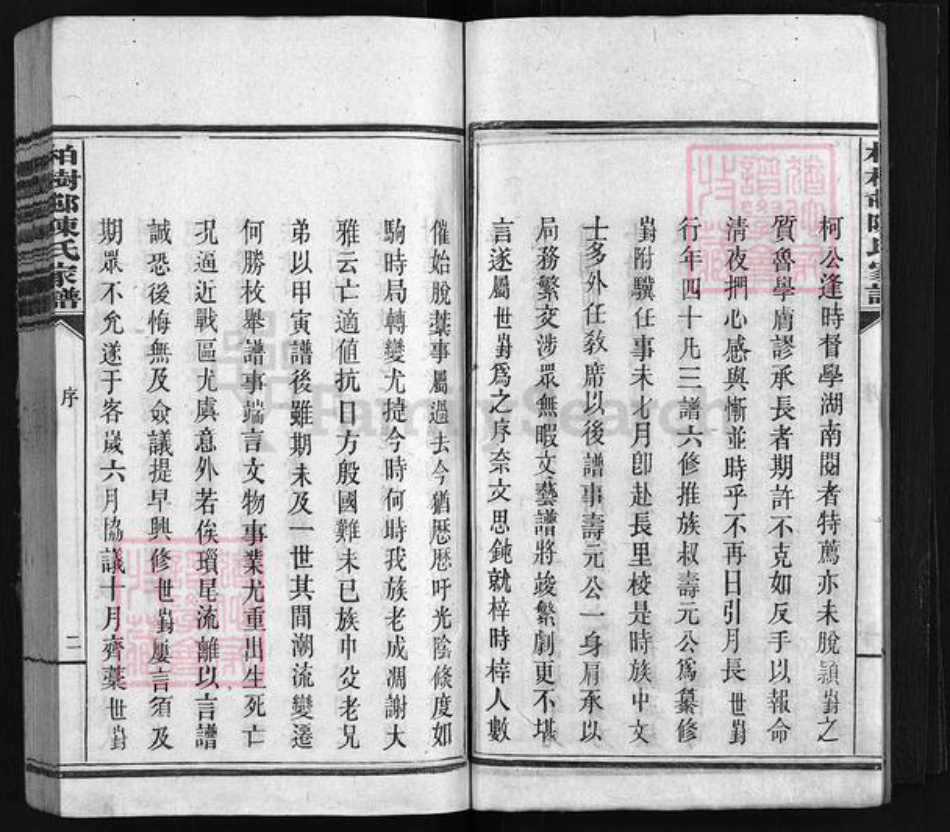 柯公逢時督學湖南閱者特薦亦未脫頴對之
質魯學膚謬承長者期許不克如反手以報命
清夜捫心感與慚並時乎不再日引月長世對
行年四十凡三譜六修推族叔壽元公爲纂修
對附驥任事未才月卽赴長里校是時族中文
士多外任敎席以後譜事壽元公一身肩承以
局務繁交涉眾無暇文藝譜將竣繁劇更不堪
言遂屬世對爲之序奈文思鈍就梓時梓人數
催始脫藁事屬過去今猶歷歷吁光陰條度如
駒時局轉變尤捷今時何時我族老成凋謝大
雅云亡適值抗日方殷國難未已族中父老兄
弟以甲寅譜後雖期未及一世其間潮流變遷
何勝枚舉譜事端言文物事業尤重出生死亡
況逼近戰區尤虞意外若俟瑣尾流離以言譜
誠恐後悔無及僉議提早興修世對屢言須及
期眾不允遂于客歲六月協議十月齊藁世對
柏樹鄰陳氏家譜
序
二
FamilySearch